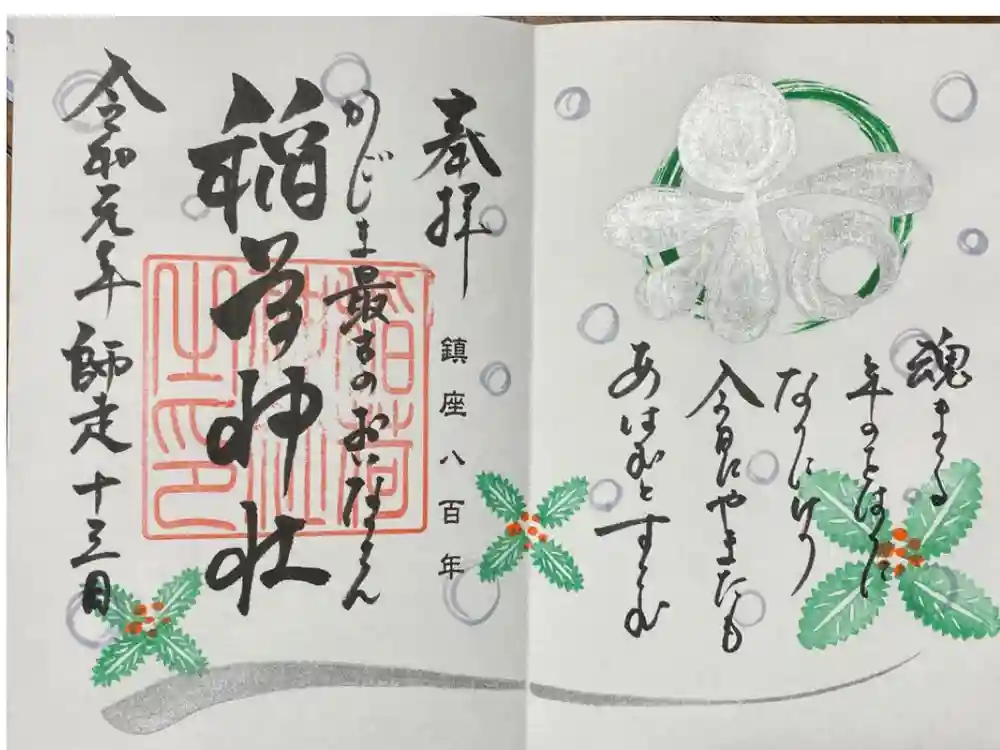 魂まつる
年のをはりに
なりにけり
今日にやまたも
あはむとすらむ
奉拝
鎮座八百年
かごしま最古のおいなりさん
稲荷神社
稲荷
神社
之印
令和元年 師走 十三日